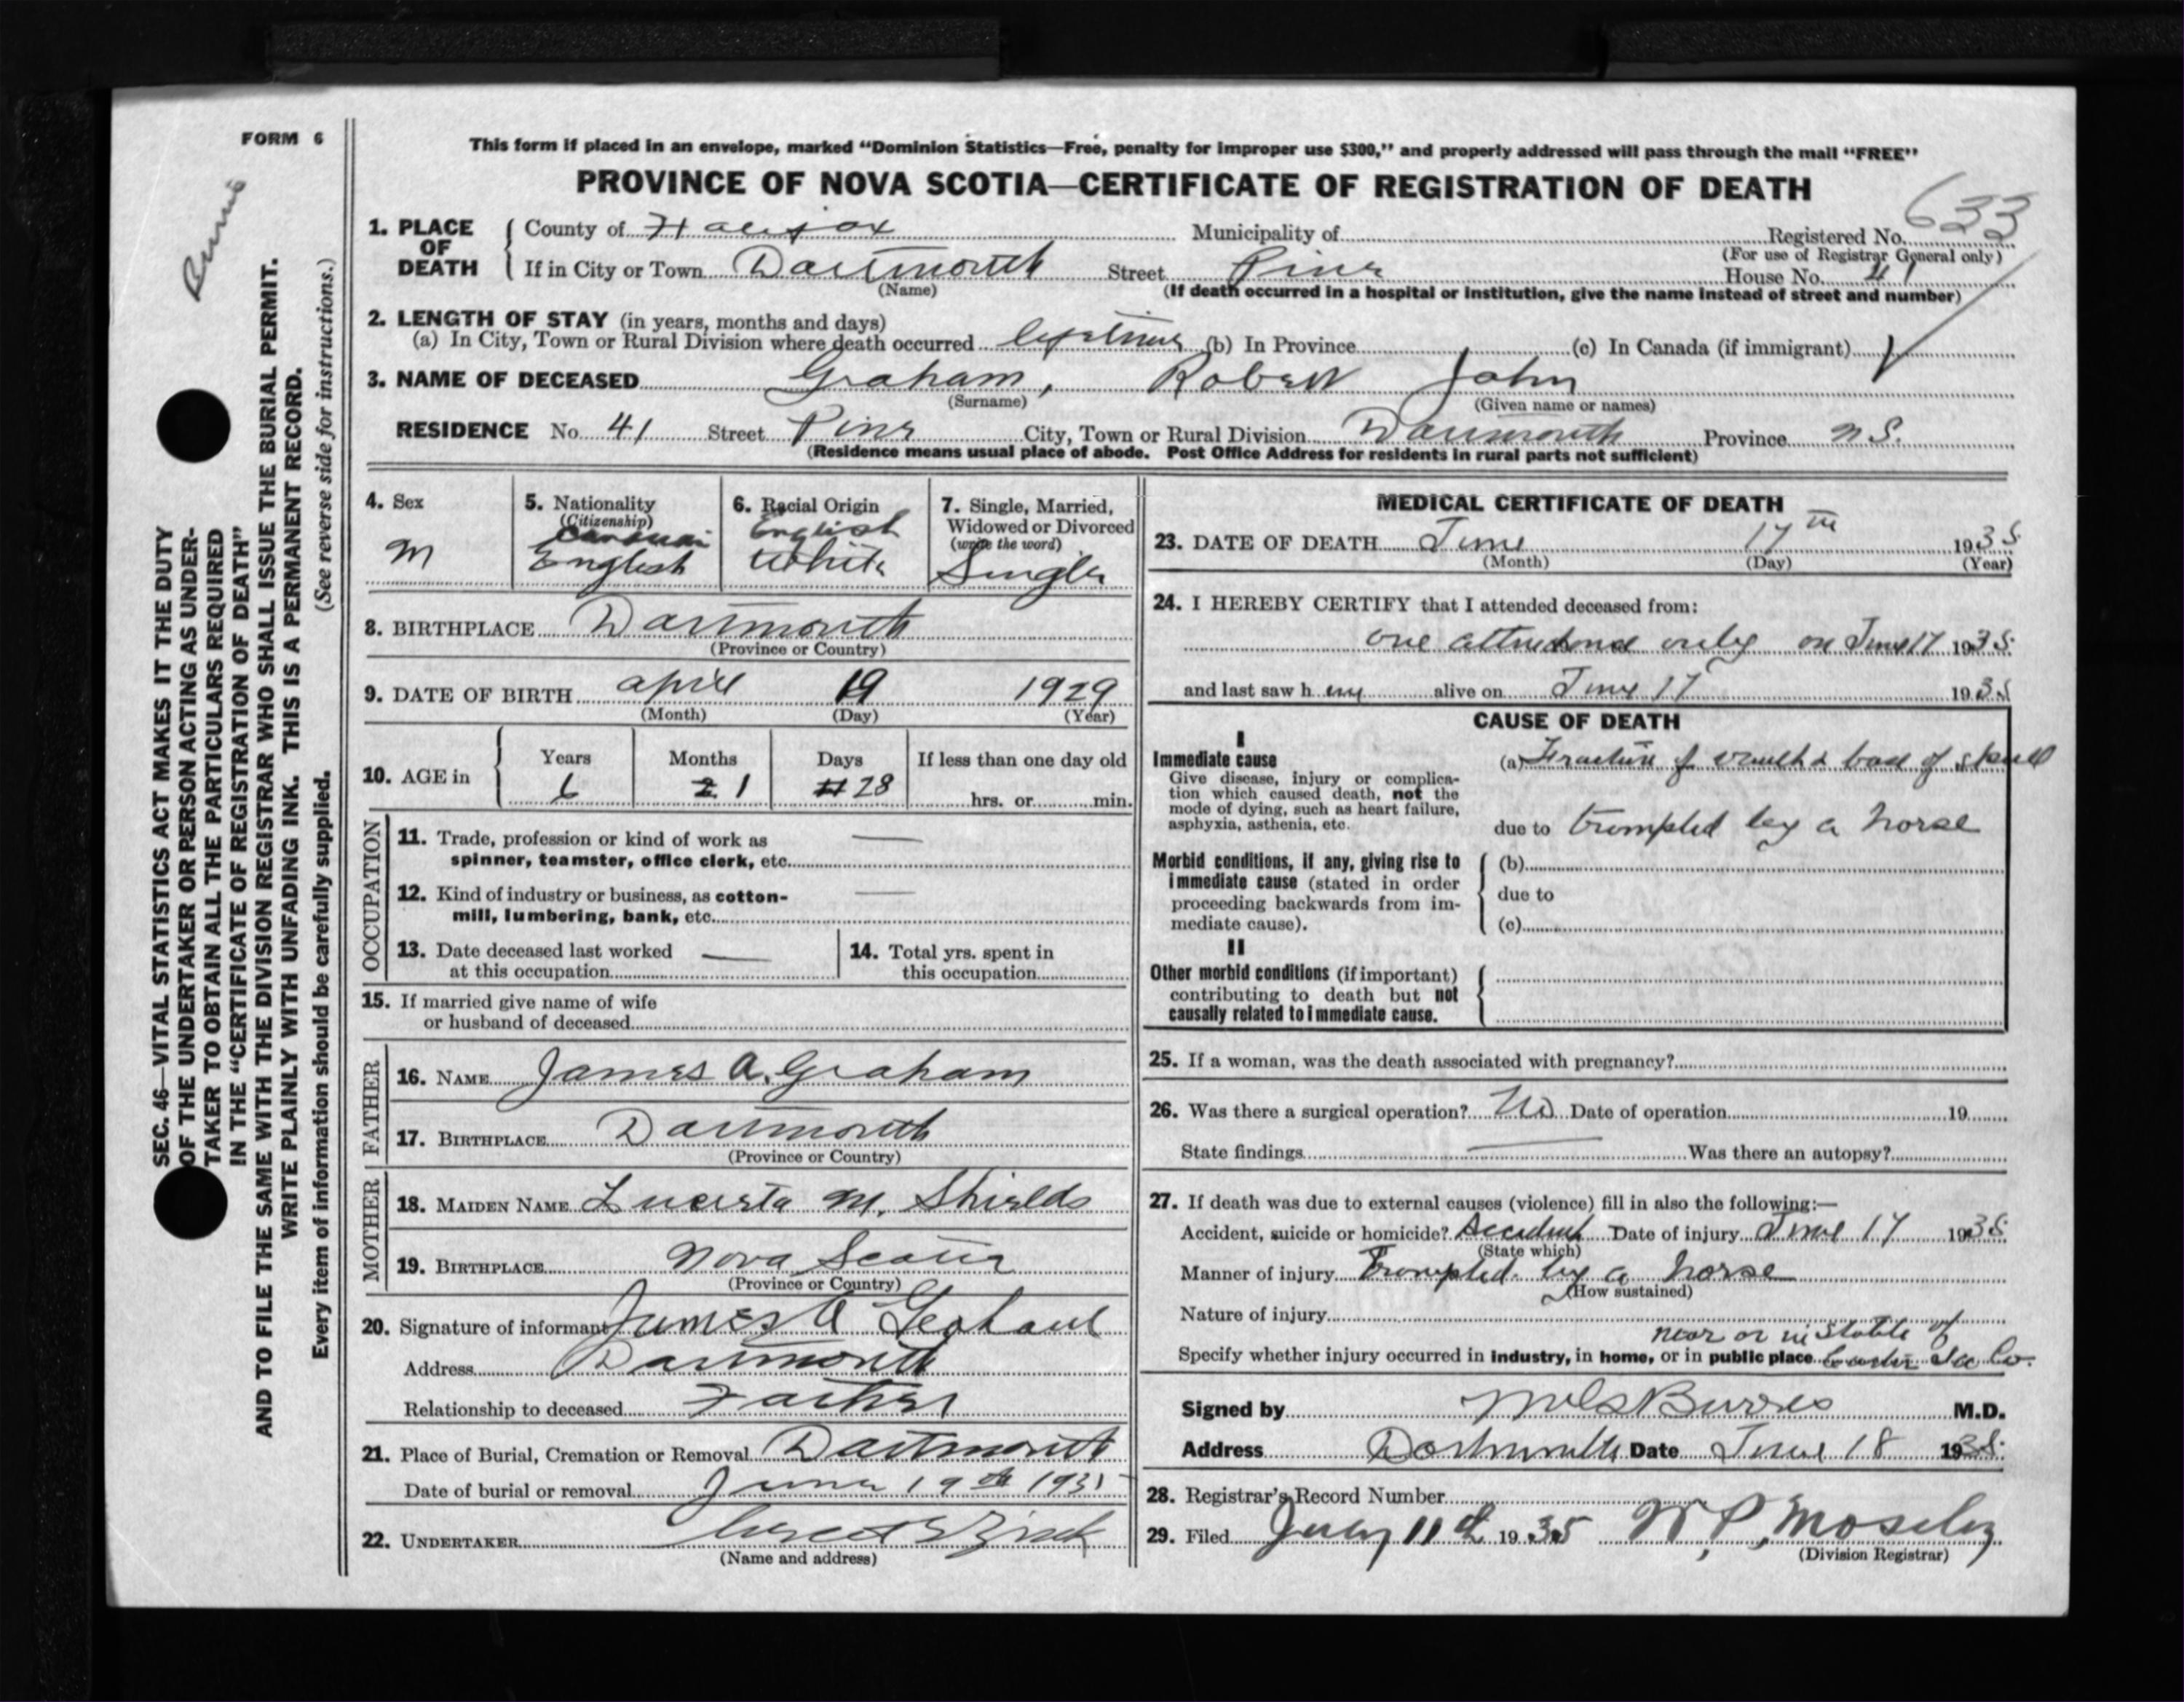 FORM 6
This form if placed in an envelope, marked "Dominion Statistics—Free, penalty for improper use $300," and properly addressed will pass through the mail "FREE"
PROVINCE OF NOVA SCOTIA—CERTIFICATE OF REGISTRATION OF DEATH
633
1. PLACE OF DEATH County of Halifax Municipality of Registered No.
(For use of Registrar General only)
If in City or Town Dartmouth Street Pine House No. 41
(Name) (If death occurred in a hospital or institution, give the name instead of street and number)
2. LENGTH OF STAY (in years, months and days)
(a) In City, Town or Rural Division where death occurred lifetime (b) In Province (c) In Canada (if immigrant)
3. NAME OF DECEASED Graham, Robert John
(Surname) (Given name or names)
RESIDENCE No. 41 Street Pine City, Town or Rural Division Dartmouth Province N.S.
(Residence means usual place of abode. Post Office Address for residents in rural parts not sufficient)
4. Sex
M
5. Nationality
(Citizenship)
English
6. Racial Origin
English
White
7. Single, Married,
Widowed or Divorced
(write the word)
Single
8. BIRTHPLACE Dartmouth
(Province or Country)
9. DATE OF BIRTH April 19 1929
(Month) (Day) (Year)
10. AGE in
Years Months Days If less than one day old
6 1 28 hrs. or min.
OCCUPATION
11. Trade, profession or kind of work as —
spinner, teamster, office clerk, etc.
12. Kind of industry or business, as cotton- —
mill, lumbering, bank, etc.
13. Date deceased last worked —
at this occupation
14. Total yrs. spent in
this occupation
15. If married give name of wife
or husband of deceased
FATHER
16. NAME James A. Graham
17. BIRTHPLACE Dartmouth
(Province or Country)
MOTHER
18. MAIDEN NAME M. Shields
19. BIRTHPLACE Nova Scotia
(Province or Country)
20. Signature of informant James A
Address Dartmouth
Relationship to deceased Father
21. Place of Burial, Cremation or Removal Dartmouth
Date of burial or removal June 19th 1935
22. UNDERTAKER
(Name and address)
MEDICAL CERTIFICATE OF DEATH
23. DATE OF DEATH June 17th 1935
(Month) (Day) (Year)
24. I HEREBY CERTIFY that I attended deceased from:
one attendance only on June 17 1935
and last saw h alive on June 17 1935
CAUSE OF DEATH
I
Immediate cause
Give disease, injury or complica-
tion which caused death, not the
mode of dying, such as heart failure,
asphyxia, asthenia, etc.
(a) Fracture of vault & base of skull
due to trompled by a horse
Morbid conditions, if any, giving rise to
immediate cause (stated in order
proceeding backwards from im-
mediate cause).
(b)
due to
(c)
II
Other morbid conditions (if important)
contributing to death but not
causally related to immediate cause.
25. If a woman, was the death associated with pregnancy?
26. Was there a surgical operation? No Date of operation 19
State findings — Was there an autopsy?
27. If death was due to external causes (violence) fill in also the following:—
Accident, suicide or homicide? Accident Date of injury June 17 1935
(State which)
Manner of injury Trompled by a horse
(How sustained)
Nature of injury
near or in stable of
Specify whether injury occurred in industry, in home, or in public place Co.
Signed by Burris M.D.
Address Dartmouth Date June 18 1935
28. Registrar's Record Number
29. Filed July 11th 1935 W. P. Moseley
(Division Registrar)
SEC. 46—VITAL STATISTICS ACT MAKES IT THE DUTY
OF THE UNDERTAKER OR PERSON ACTING AS UNDER-
TAKER TO OBTAIN ALL THE PARTICULARS REQUIRED
IN THE "CERTIFICATE OF REGISTRATION OF DEATH"
AND TO FILE THE SAME WITH THE DIVISION REGISTRAR WHO SHALL ISSUE THE BURIAL PERMIT.
WRITE PLAINLY WITH UNFADING INK. THIS IS A PERMANENT RECORD.
Every item of information should be carefully supplied. (See reverse side for instructions.)